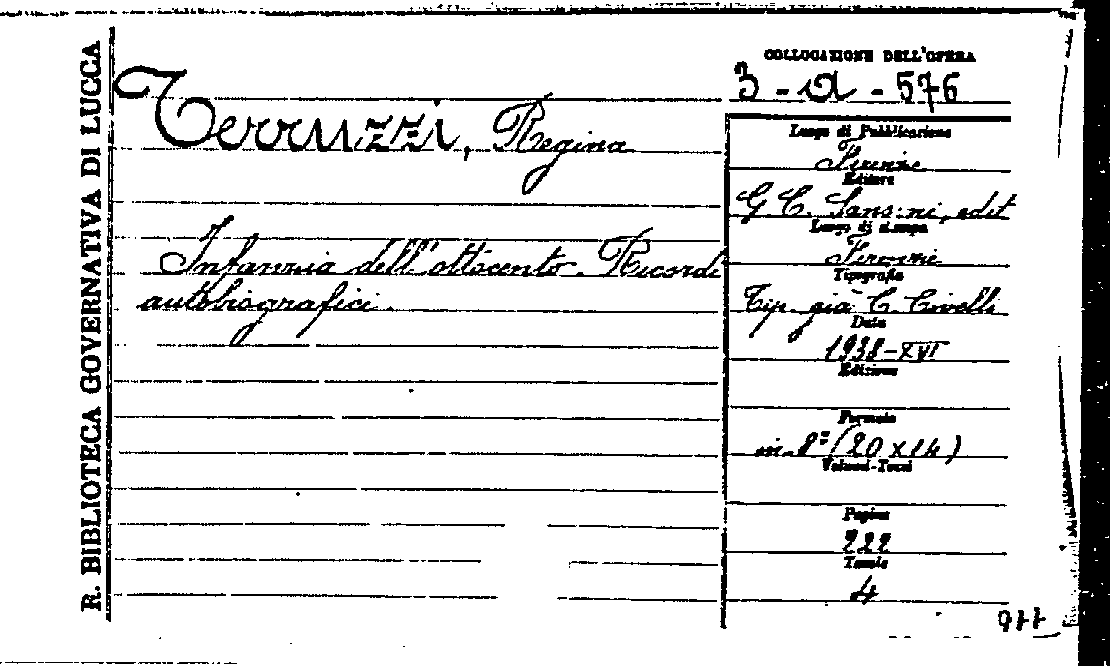 R. BIBLIOTECA GOVERNATIVA DI LUCCA
Terruzzi, Regina
Infanzia dell'ottocento. Ricordi
autobiografici.
COLLOCAZIONE DELL'OPERA
3 - a - 576
Luogo di Pubblicazione
Firenze
Editore
G. C. Sansoni, edit
Luogo di stampa
Firenze
Tipografia
Tip. già C. Civelli
Data
1938-XVI
Edizione
Formato
in-8º (20 x 14)
Volumi-Tomi
Pagine
222
Tavole
4